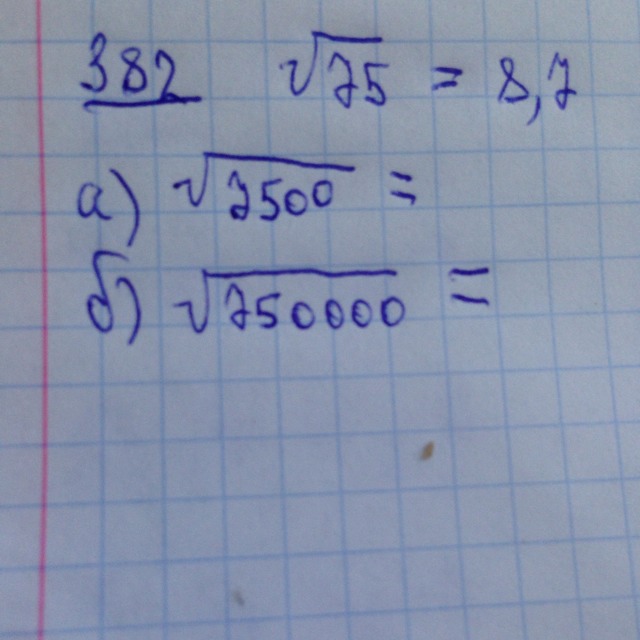 382 √75 = 8,7
а) √7500 =
б) √750000 =